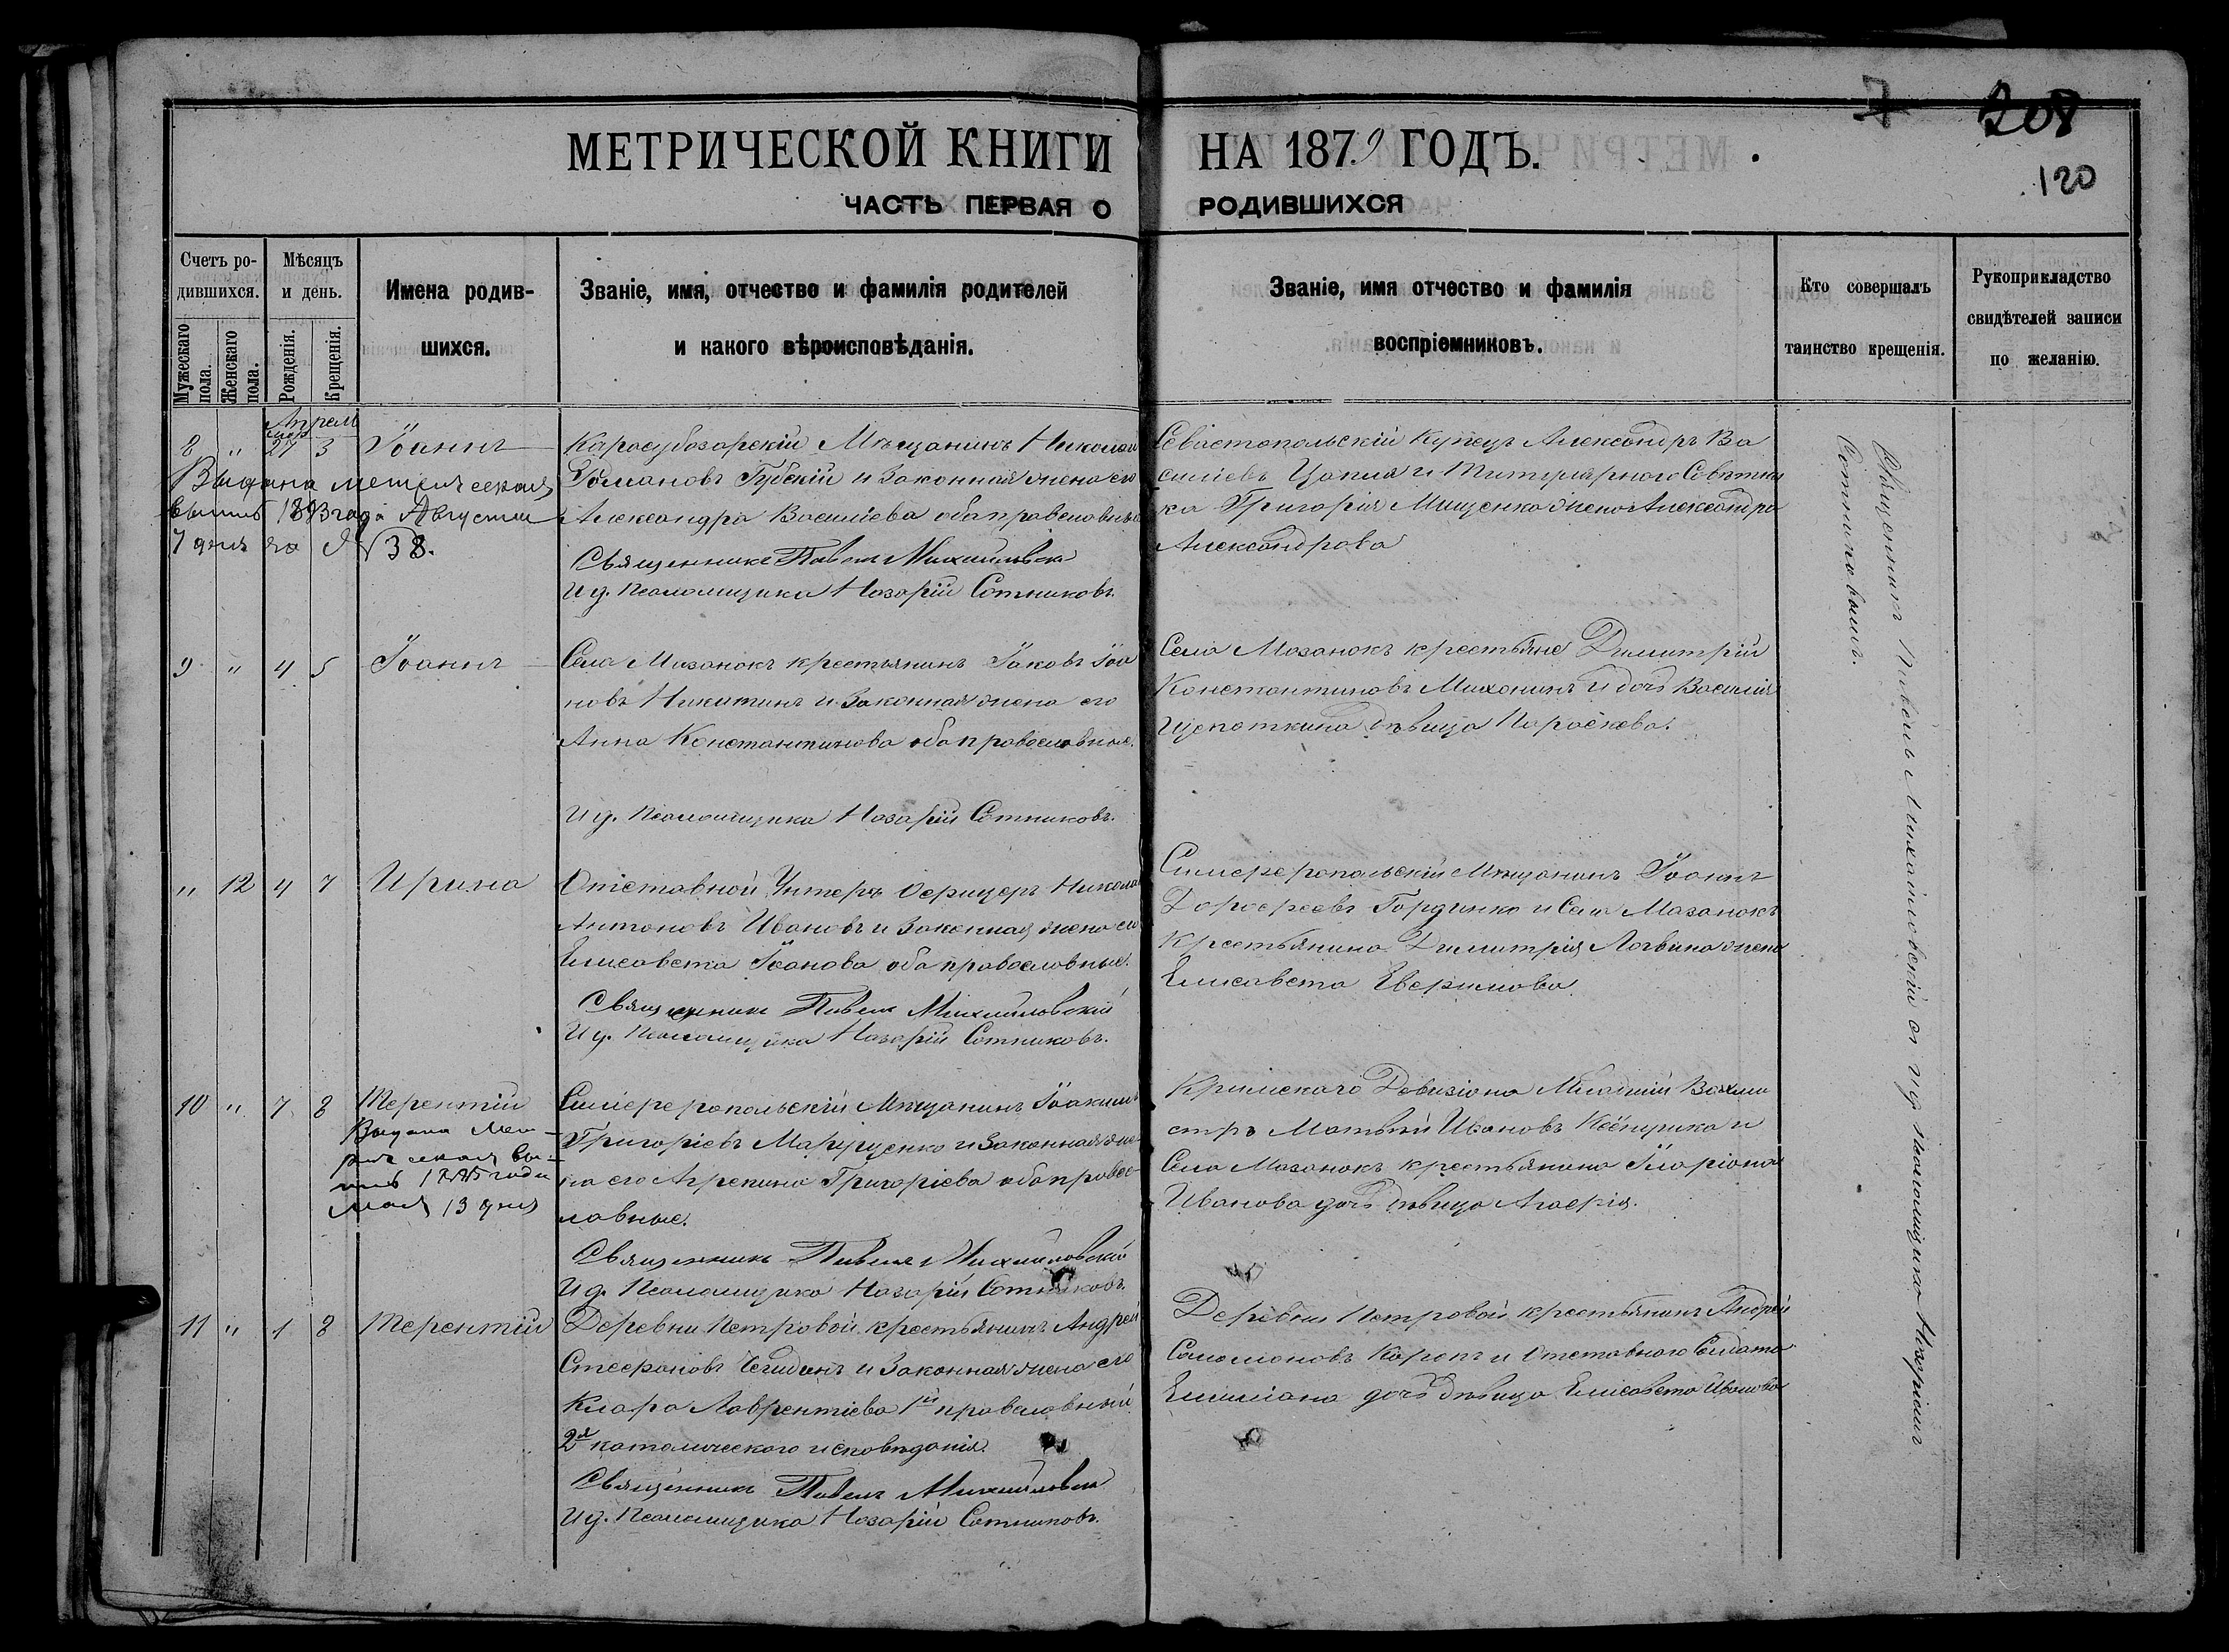 7 208
120
МЕТРИЧЕСКОЙ КНИГИ НА 1879 ГОДЪ.
ЧАСТЬ ПЕРВАЯ О РОДИВШИХСЯ
Счетъ ро-
дившихся.
Мужескаго пола.
Женскаго пола.
Мѣсяцъ
и день.
Рожденія.
Крещенія.
Имена родив-
шихся.
Званіе, имя, отчество и фамилія родителей
и какого вѣроисповѣданія.
Званіе, имя отчество и фамилія
воспріемниковъ.
Кто совершалъ
таинство крещенія.
Рукоприкладство
свидѣтелей записи
по желанію.
Апрель
8 " 27 3 Іоаннъ
Выдана метрическая
выпись 1893 года Августа
7 дня за № 38.
Карасубазарскій Мѣщанинъ Николай
Романовъ Губскій и Законная жена его
Александра Васильева оба православные
Священникъ Павелъ Михайловскій
И д. Псаломщика Назарій Сотниковъ.
Севастопольскій Купецъ Александръ Ва
сильевъ и Титулярного Совѣтни
ка Григорія Мищенко жена Александра
Александрова
9 " 4 5 Іоаннъ
Села Мазанокъ крестьянинъ Іаковъ Іоа
новъ Никитинъ и Законная жена его
Анна Константинова оба православные.
И д. Псаломщика Назарій Сотниковъ.
Села Мазанокъ крестьяне Димитрій
Константиновъ Миханинъ и дочь Василія
Щепоткина дѣвица Параскева.
" 12 4 7 Ирина
Отставной Унтеръ Офицеръ Никола
Антоновъ Ивановъ и Законная жена его
Елисавета Іоанова оба православные.
Священникъ Павелъ Михайловскій
И д. Псаломщика Назарій Сотниковъ.
Симферопольскій Мѣщанинъ Іоаннъ
Дорофеевъ Гордиенко и Села Мазанокъ
Крестьянина Димитрія Логвина жена
Елисавета
10 " 7 8 Терентій
Выдана Мет-
рическая вы-
пись 1885 года
мая 13 дня
Симферопольскій Мѣщанинъ Іоакимъ
Григоріевъ Марущенко и Законная же-
на его Агрепина Григоріева оба правос-
лавные.
Священникъ Павелъ Михайловскій
И д. Псаломщика Назарій Сотниковъ.
Крымскаго Девизіона Младшій Вахми
стръ Матвѣй Ивановъ и
Села Мазанокъ крестьянина Иларіона
Иванова дочь дѣвица Агафія.
11 " 1 8 Терентій
Деревни Петровой крестьянинъ Андрей
Стефановъ и Законная жена его
Клара Лаврентіева 1й православный
2я католического исповѣданія.
Священникъ Павелъ Михайловскій
И д. Псаломщика Назарій Сотниковъ.
Деревни Петровой крестьянинъ Андрей
Соломоновъ Карепъ и Отставного Солдата
Емиліана дочь дѣвица Елисавета Иванова
Священникъ Павелъ Михайловскій съ и д псаломщика Назаріемъ
Сотниковымъ.